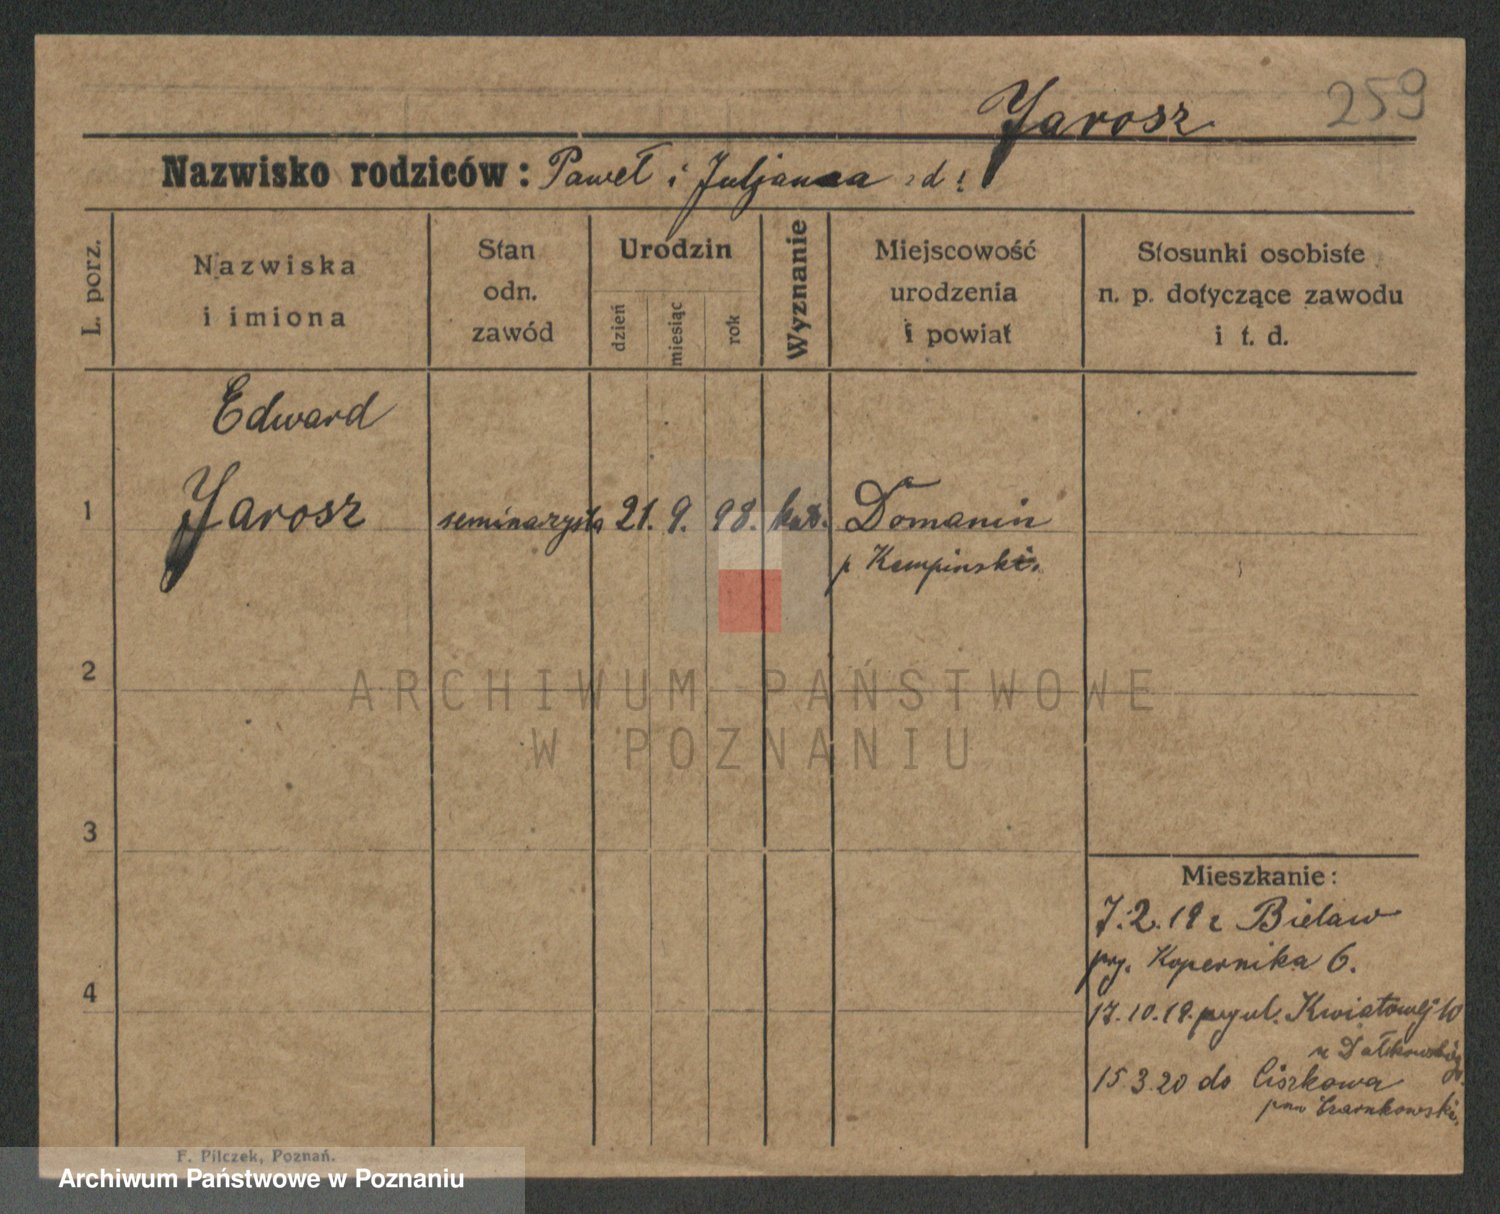 259
Jarosz
Nazwisko rodziców: Paweł i Juljanna
L. porz.
Nazwiska i imiona
Stan odn. zawód
Urodzin
dzień
miesiąc
rok
Wyznanie
Miejscowość urodzenia i powiat
Stosunki osobiste n. p. dotyczące zawodu i t. d.
Edward
1 Jarosz seminarzysta 21. 9. 98. kat. Domanin
p Kempinski.
2
3
4
ARCHIWUM PAŃSTWOWE
W POZNANIU
Mieszkanie:
7.2.19 z Bielaw
przy. Kopernika 6.
17.10.19. przy ul. Kwiatowej 10
15.3.20 do Ciszkowa
pow Czarnkowski.
F. Pilczek, Poznań.
Archiwum Państwowe w Poznaniu